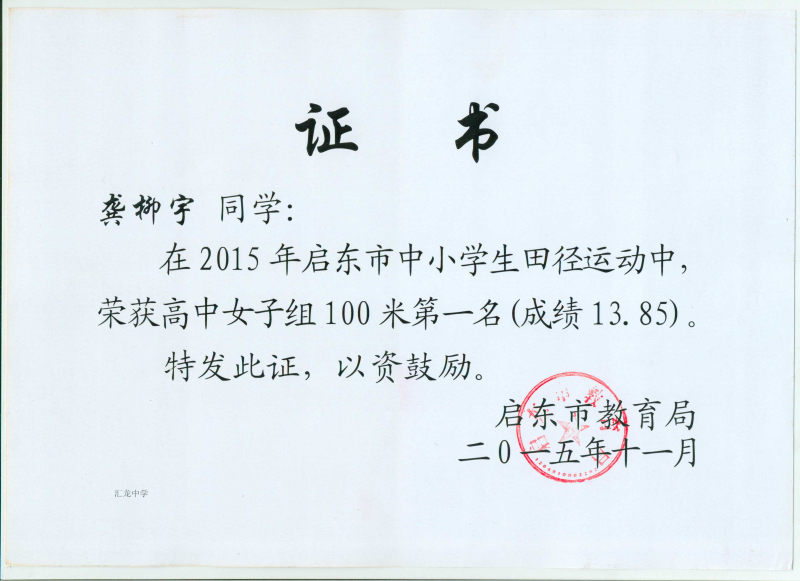 证 书
龚柳宇 同学：
在2015年启东市中小学生田径运动中，
荣获高中女子组100米第一名(成绩13.85)。
特发此证，以资鼓励。
启东市教育局
二0一五年十一月
汇龙中学